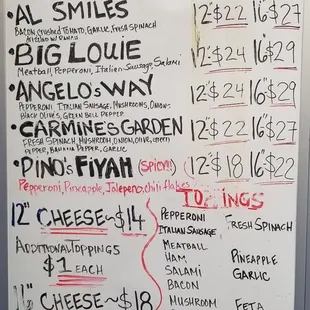 • AL SMILES 12" $22 16" $27
BACON CRUSHED TOMATO, GARLIC, FRESH SPINACH
• BIG LOUIE 12" $24 16" $29
Meatball, Pepperoni, Italian-Sausage, Salami
• ANGELO'S WAY 12" $24 16" $29
PEPPERONI ITALIAN SAUSAGE, MUSHROOMS, ONIONS
BLACK OLIVES, GREEN BELL PEPPER
• CARMINE'S GARDEN 12" $22 16" $27
FRESH SPINACH, MUSHROOM, ONION, OLIVE, GREEN
PEPPER, BANANA PEPPER, GARLIC
• DINO'S FIYAH (SPICY!!) 12" $18 16" $22
Pepperoni, Pineapple, Jalepeno, chili flakes
12" CHEESE ~ $14
ADDITIONAL TOPPINGS
$1 EACH
CHEESE ~ $18
PEPPERONI
ITALIAN SAUSAGE
MEATBALL
HAM
SALAMI
BACON
MUSHROOM
FRESH SPINACH
PINEAPPLE
GARLIC
FETA